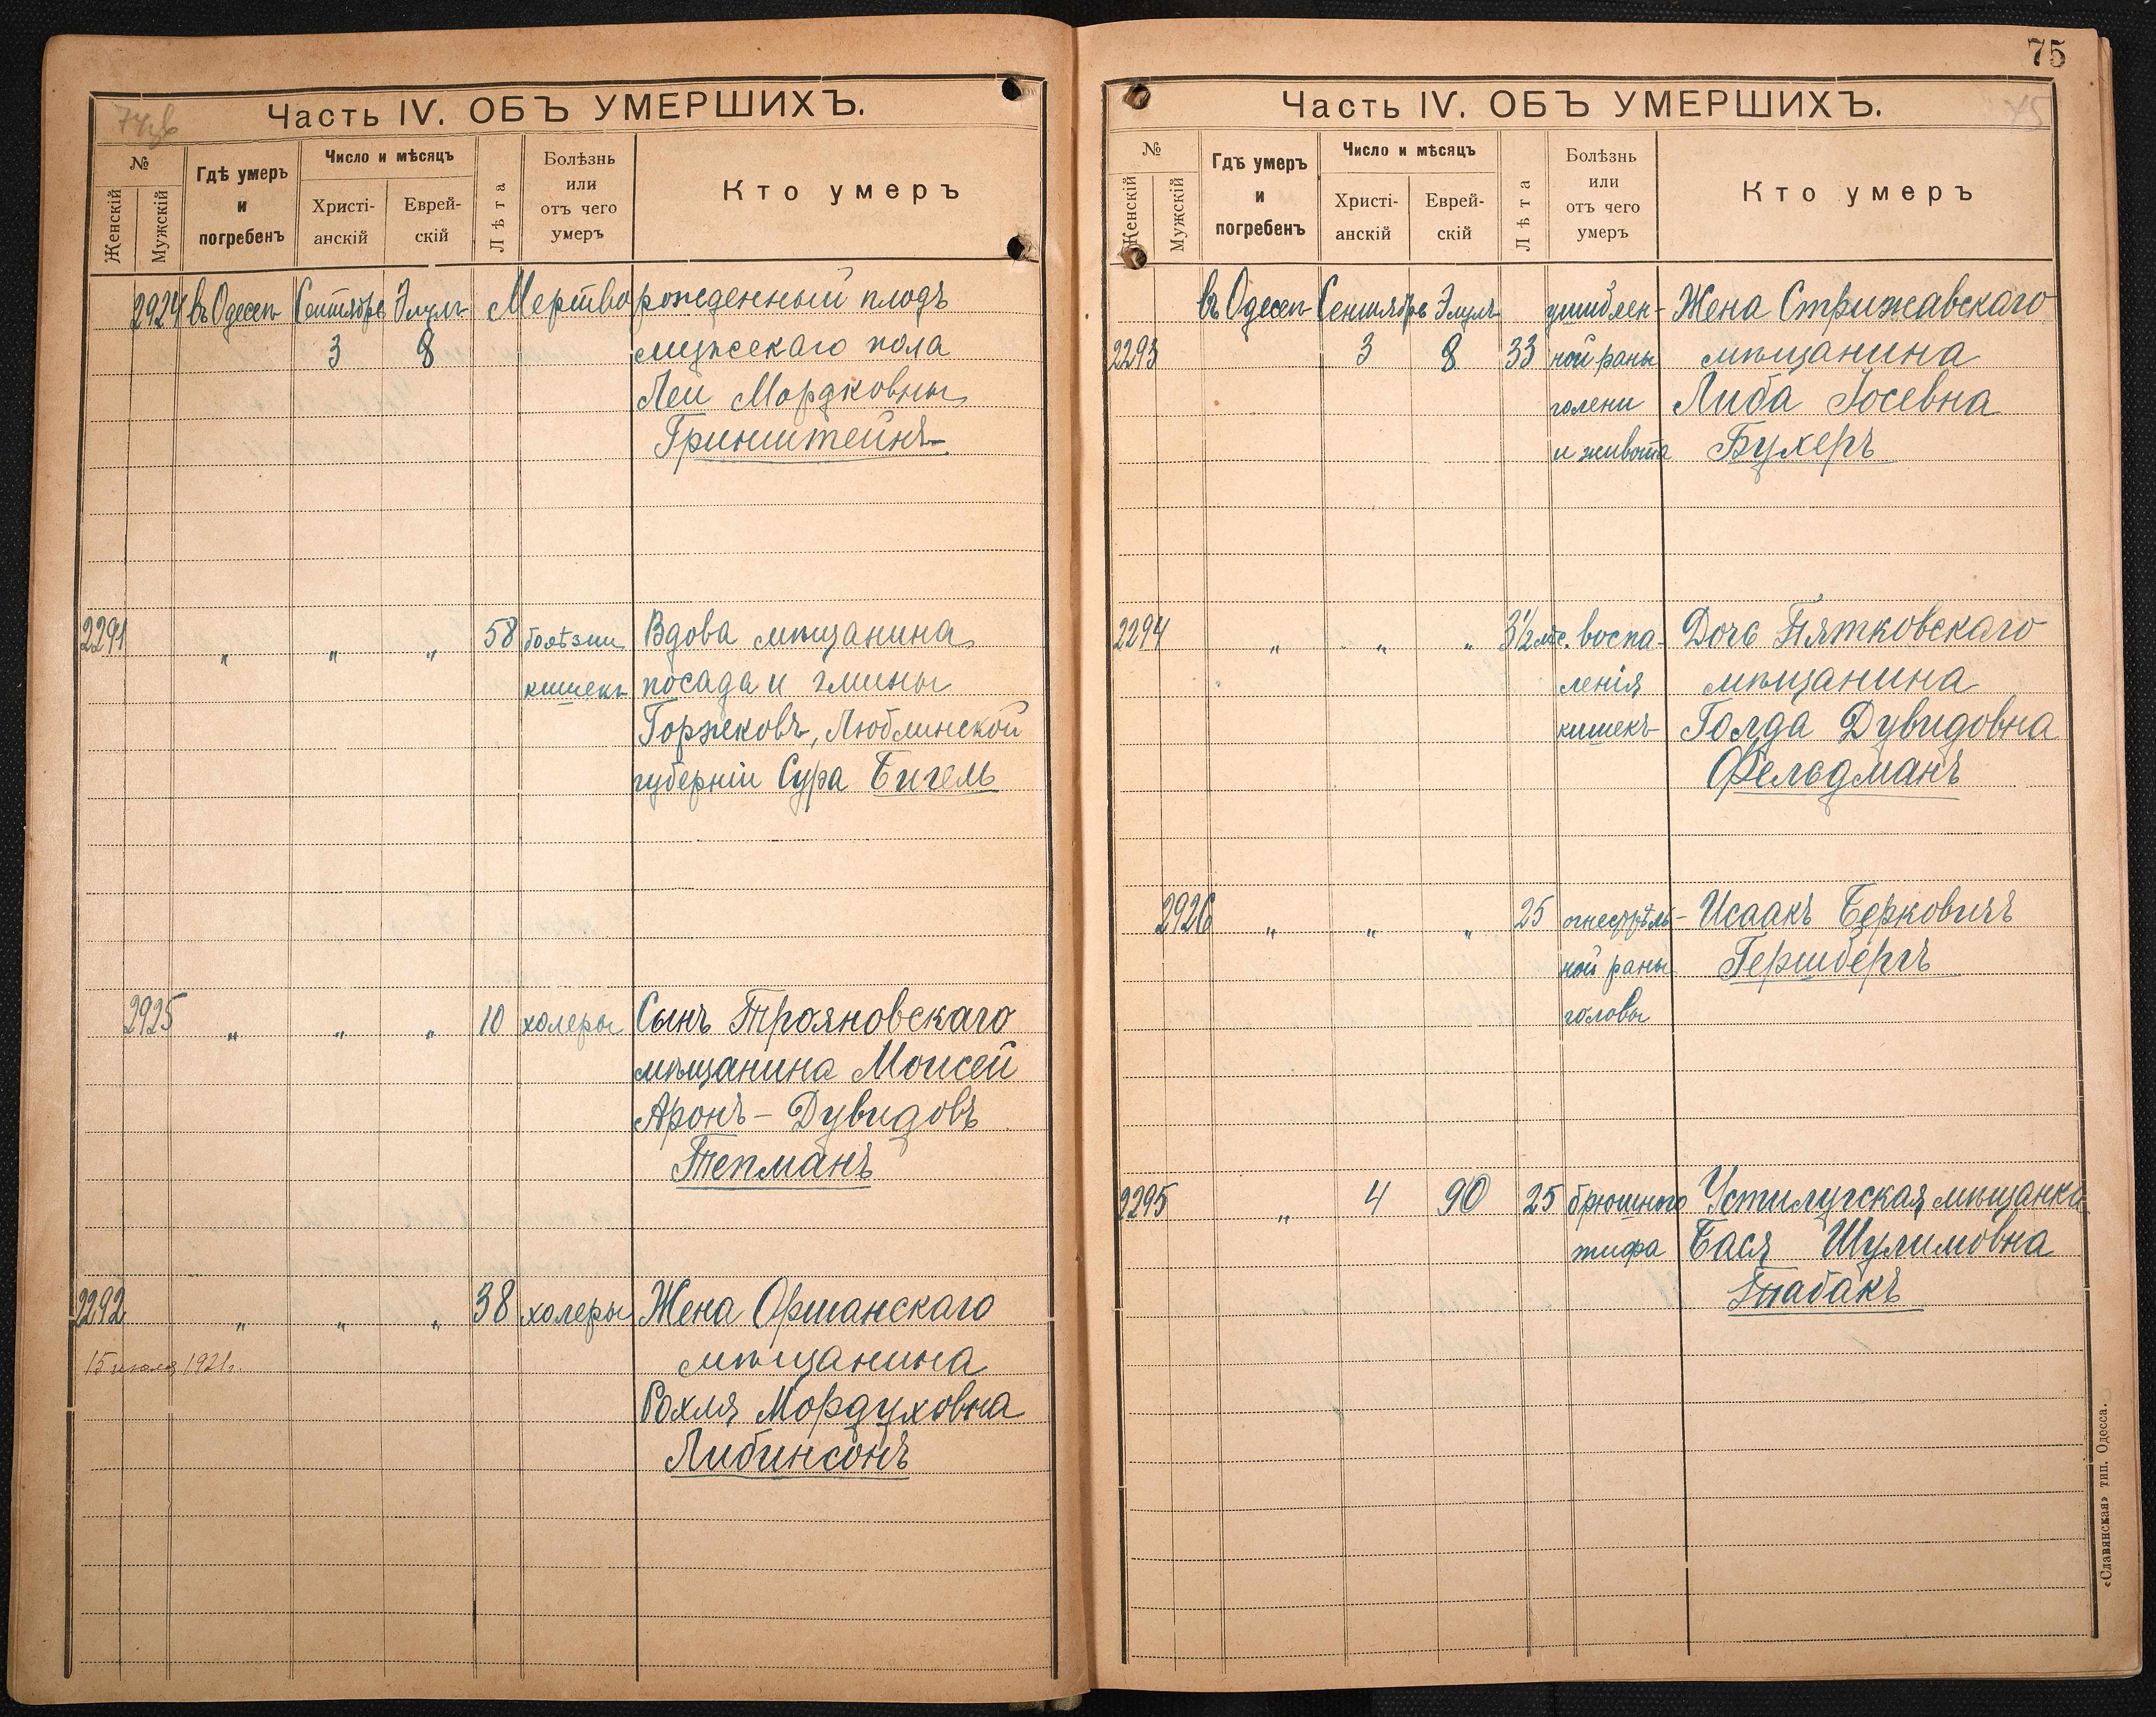 74об
Часть IV. ОБЪ УМЕРШИХЪ.
№
Женскій
Мужскій
Гдѣ умеръ
и
погребенъ
Число и мѣсяцъ
Христі-
анскій
Еврей-
скій
Лѣта
Болѣзнь
или
отъ чего
умеръ
Кто умеръ
2924 въ Одессѣ Сентябрь Элулъ Мертворожденный плодъ
3 8 мужескаго пола
Леи Мордковны
Гринштейнъ
2291 „ „ „ 58 болѣзни Вдова мѣщанина
кишекъ посада и гмины
Горжековъ, Люблинской
губерніи Сура Бигель
2925 „ „ „ 10 холеры Сынъ Трояновскаго
мѣщанина Моисей
Аронъ-Дувидовъ
Тепманъ
2292 „ „ „ 38 холеры Жена Оршанскаго
15 июля 1921г. мѣщанина
Рохля Мордуховна
Либинсонъ
75
75
Часть IV. ОБЪ УМЕРШИХЪ.
№
Женскій
Мужскій
Гдѣ умеръ
и
погребенъ
Число и мѣсяцъ
Христі-
анскій
Еврей-
скій
Лѣта
Болѣзнь
или
отъ чего
умеръ
Кто умеръ
въ Одессѣ Сентябрь Элулъ ушиблен- Жена Стрижавскаго
2293 3 8 33 ной раны мѣщанина
голени Либа Іосевна
и живота Бухеръ
2294 „ „ „ 3½ мѣс. воспа- Дочь Пятковскаго
ленія мѣщанина
кишекъ Голда Дувидовна
Фельдманъ
2926 „ „ „ 25 огнестрѣль- Исаакъ Берковичъ
ной раны Гершбергъ
головы
2295 „ 4 90 25 брюшного Устилугская мѣщанка
тифа Бася Шулимовна
Табакъ
«Славянская» тип. Одесса.